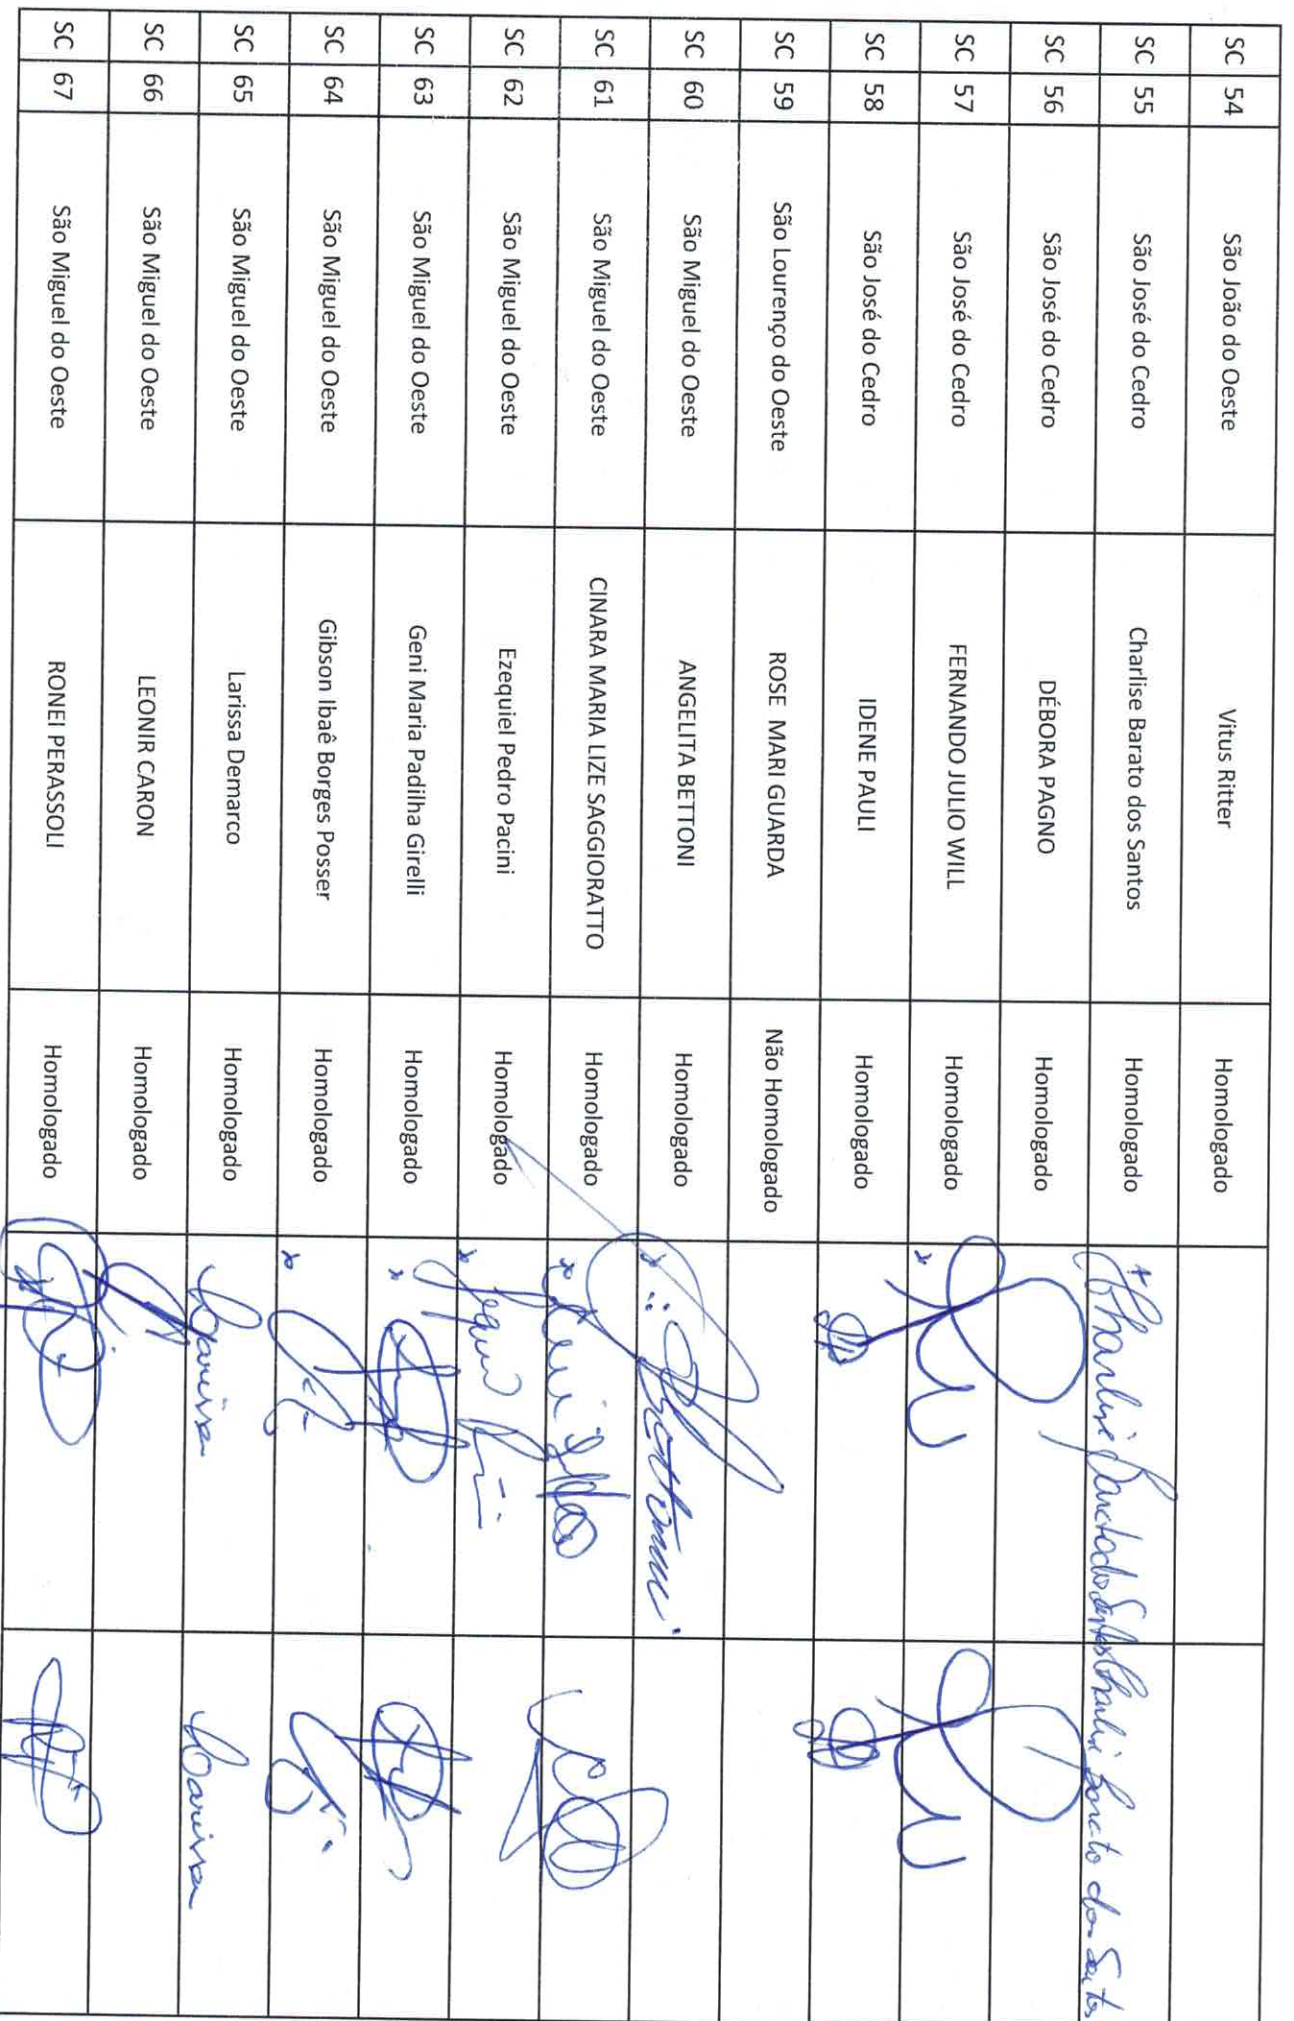 SC 54 São João do Oeste Vitus Ritter Homologado
SC 55 São José do Cedro Charlise Barato dos Santos Homologado Charlise Barato dos Santos Charlise Barato dos Santos
SC 56 São José do Cedro DÉBORA PAGNO Homologado
SC 57 São José do Cedro FERNANDO JULIO WILL Homologado
SC 58 São José do Cedro IDENE PAULI Homologado
SC 59 São Lourenço do Oeste ROSE MARI GUARDA Não Homologado
SC 60 São Miguel do Oeste ANGELITA BETTONI Homologado
SC 61 São Miguel do Oeste CINARA MARIA LIZE SAGGIORATTO Homologado
SC 62 São Miguel do Oeste Ezequiel Pedro Pacini Homologado
SC 63 São Miguel do Oeste Geni Maria Padilha Girelli Homologado
SC 64 São Miguel do Oeste Gibson Ibaê Borges Posser Homologado
SC 65 São Miguel do Oeste Larissa Demarco Homologado Larissa Larissa
SC 66 São Miguel do Oeste LEONIR CARON Homologado
SC 67 São Miguel do Oeste RONEI PERASSOLI Homologado